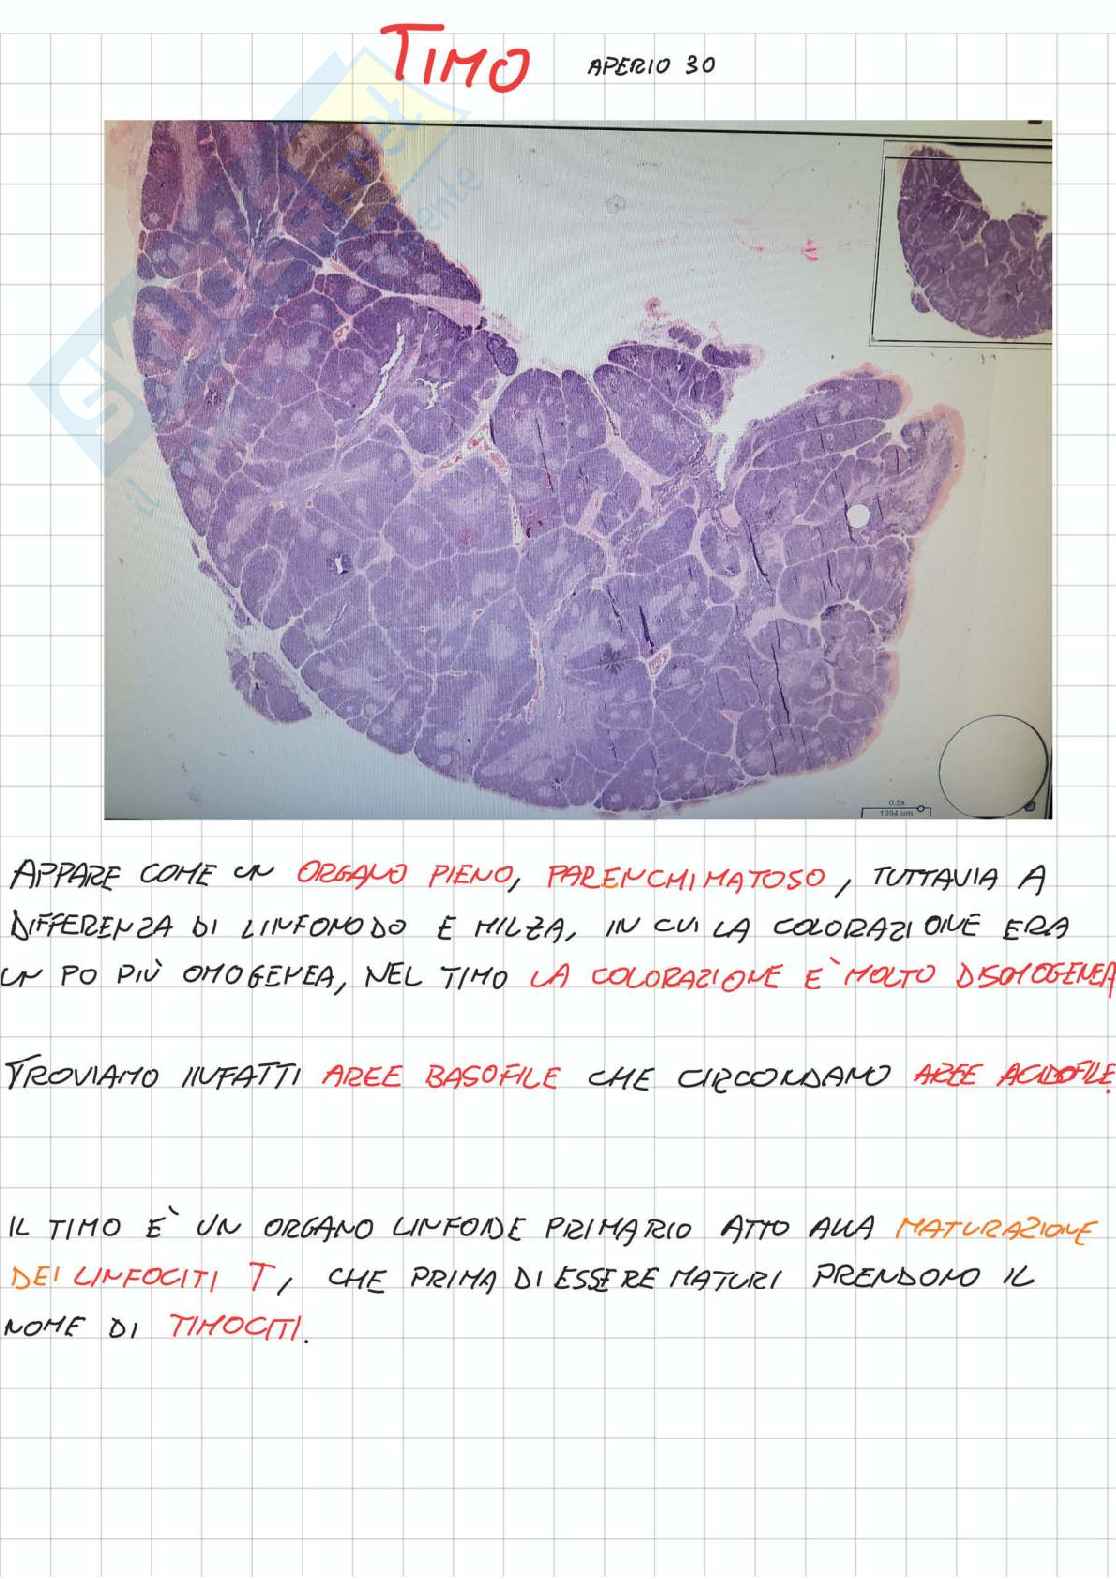 TIMO APERIO 30
0.8x
1394 um
APPARE COME UN ORGANO PIENO, PARENCHIMATOSO, TUTTAVIA A
DIFFERENZA DI LINFONODO E MILZA, IN CUI LA COLORAZIONE ERA
UN PO PIÙ OMOGENEA, NEL TIMO LA COLORAZIONE E` MOLTO DISOMOGENEA
TROVIAMO INFATTI AREE BASOFILE CHE CIRCONDANO AREE ACIDOFILE.
IL TIMO E` UN ORGANO LINFOIDE PRIMARIO ATTO ALLA MATURAZIONE
DEI LINFOCITI T, CHE PRIMA DI ESSERE MATURI PRENDONO IL
NOME DI TIMOCITI.